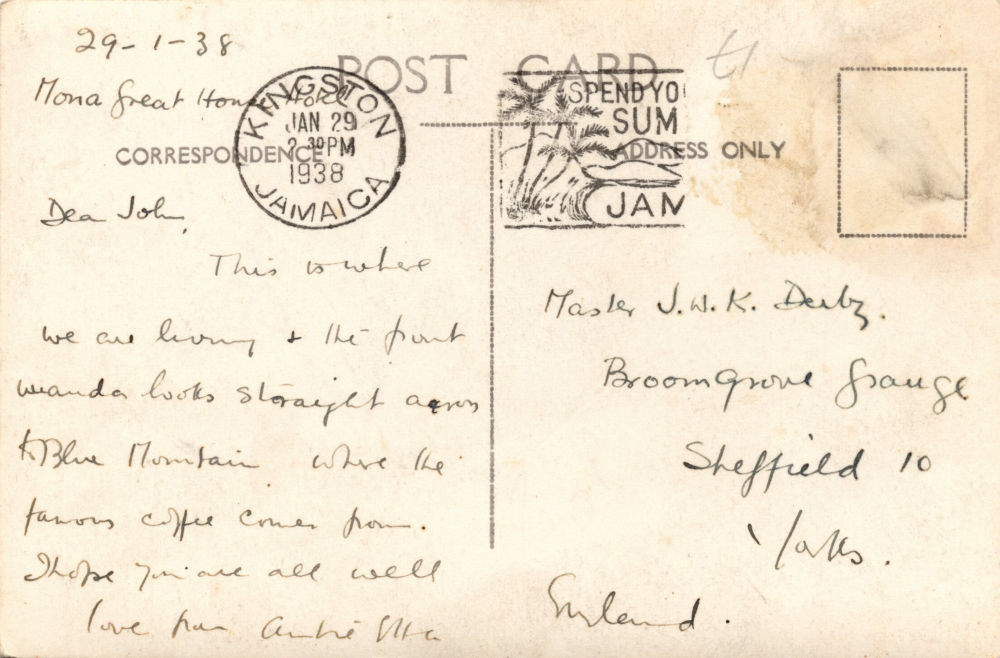 29-1-38
POST CARD
Mona Great House Hotel
KINGSTON
JAN 29
2 30 PM
1938
JAMAICA
SPEND YO
SUM
JAM
CORRESPONDENCE
ADDRESS ONLY
Dear John,
This is where
we are living & the front
verandah looks straight across
to Blue Mountain where the
famous coffee comes from.
I hope you are all well
love from Auntie Etta
Master J.W.K. Derby.
Broomgrove Grange
Sheffield 10
Yorks.
England.